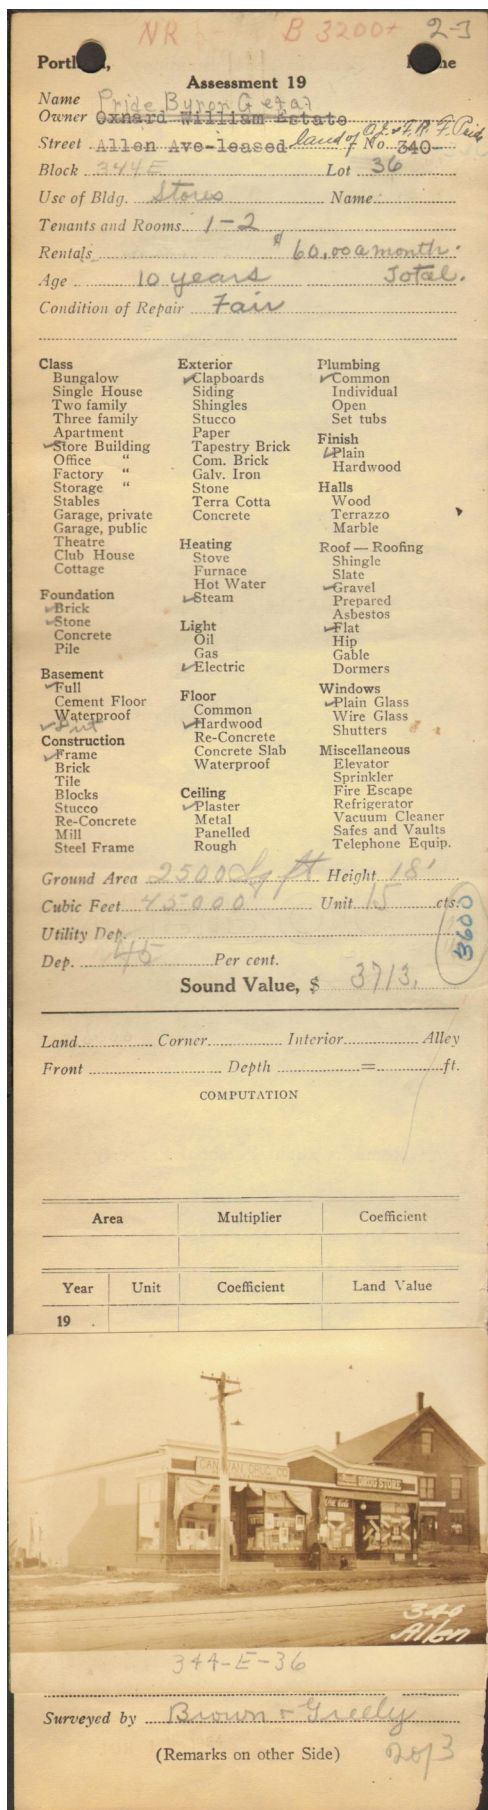 NR B 3200+ 2-3
Portland, Maine
Assessment 19
Name Pride Byron G et al
Owner Oxnard William Estate
Street Allen Ave-leased land of No. 340
Block 344E Lot 36
Use of Bldg. Stores Name
Tenants and Rooms 1-2
Rentals $60.00 a month.
Age 10 years Total.
Condition of Repair Fair
Class
Bungalow
Single House
Two family
Three family
Apartment
✓Store Building
Office "
Factory "
Storage "
Stables
Garage, private
Garage, public
Theatre
Club House
Cottage
Foundation
✓Brick
✓Stone
Concrete
Pile
Basement
✓Full
Cement Floor
Waterproof
Construction
✓Frame
Brick
Tile
Blocks
Stucco
Re-Concrete
Mill
Steel Frame
Exterior
✓Clapboards
Siding
Shingles
Stucco
Paper
Tapestry Brick
Com. Brick
Galv. Iron
Stone
Terra Cotta
Concrete
Heating
Stove
Furnace
Hot Water
✓Steam
Light
Oil
Gas
✓Electric
Floor
Common
✓Hardwood
Re-Concrete
Concrete Slab
Waterproof
Ceiling
✓Plaster
Metal
Panelled
Rough
Plumbing
✓Common
Individual
Open
Set tubs
Finish
✓Plain
Hardwood
Halls
Wood
Terrazzo
Marble
Roof — Roofing
Shingle
Slate
✓Gravel
Prepared
Asbestos
✓Flat
Hip
Gable
Dormers
Windows
✓Plain Glass
Wire Glass
Shutters
Miscellaneous
Elevator
Sprinkler
Fire Escape
Refrigerator
Vacuum Cleaner
Safes and Vaults
Telephone Equip.
Ground Area 2500 Sq ft Height 18'
Cubic Feet 45000 Unit 15 cts.
3600
Utility Dep.
Dep. 45 Per cent.
Sound Value, $ 3713.
Land Corner Interior Alley
Front Depth = ft.
COMPUTATION
Area Multiplier Coefficient
Year Unit Coefficient Land Value
19
CANAVAN DRUG CO
DRUG STORE
340
Allen
344-E-36
Surveyed by Brown & Greely
(Remarks on other Side) 2 of 3